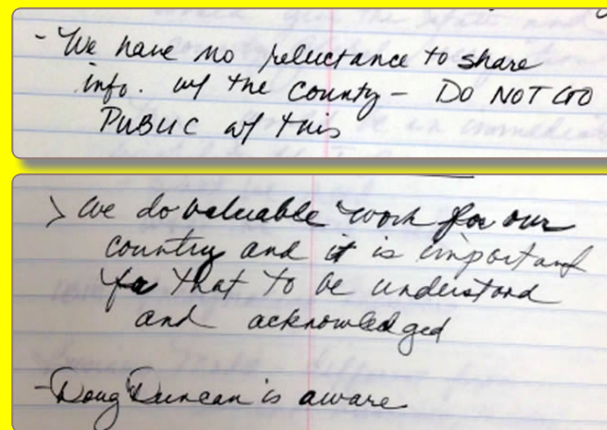 - We have no reluctance to share
info. w/ the county - DO NOT GO
PUBLIC w/ this
> We do valuable work for our
country and it is important
for that to be understood
and acknowledged
- Doug Duncan is aware